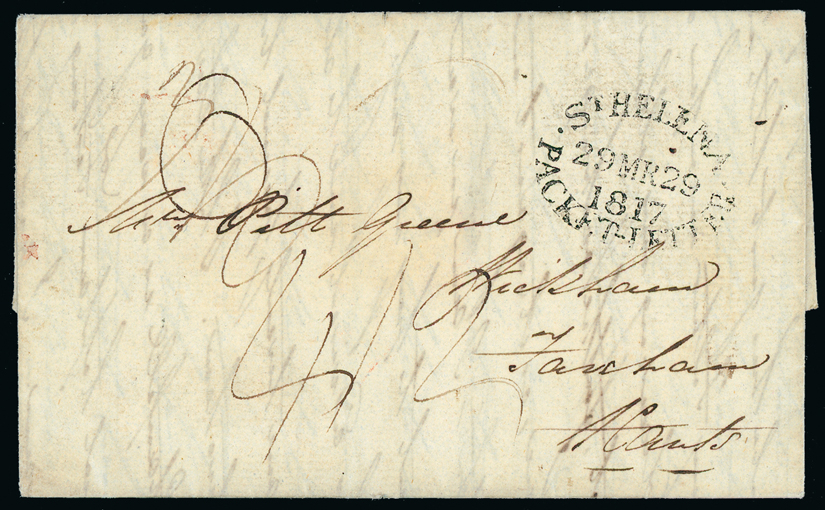 ST HELENA
29 MR 29
1817
PACKET-LETTER
Mrs Pitt Greene
Wickham
Fareham
Hants